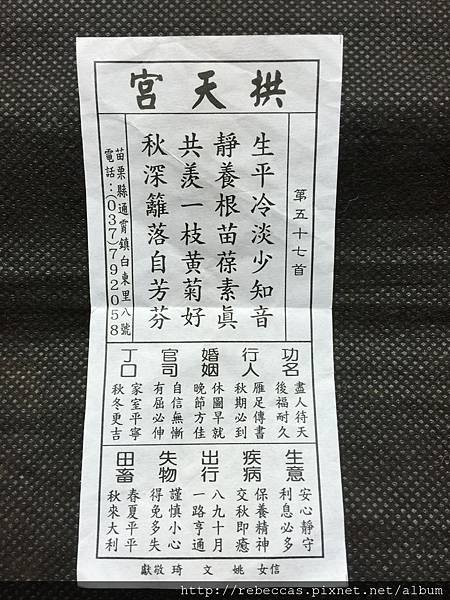 拱天宮
第五十七首
生平冷淡少知音
靜養根苗葆素真
共羨一枝黃菊好
秋深籬落自芳芬
苗栗縣通霄鎮白東里八號
電話：(037)792058
功名
盡人待天
後福耐久
行人
雁足傳書
秋期必到
婚姻
休圖早就
晚節方佳
官司
自信無慚
有屈必伸
丁口
家室平寧
秋冬更吉
生意
安心靜守
利息必多
疾病
保養精神
交秋即癒
出行
八九十月
一路亨通
失物
謹慎小心
得免多失
田畜
春夏平平
秋來大利
信女 姚 文 琦 敬獻
http://rebeccas.pixnet.net/album